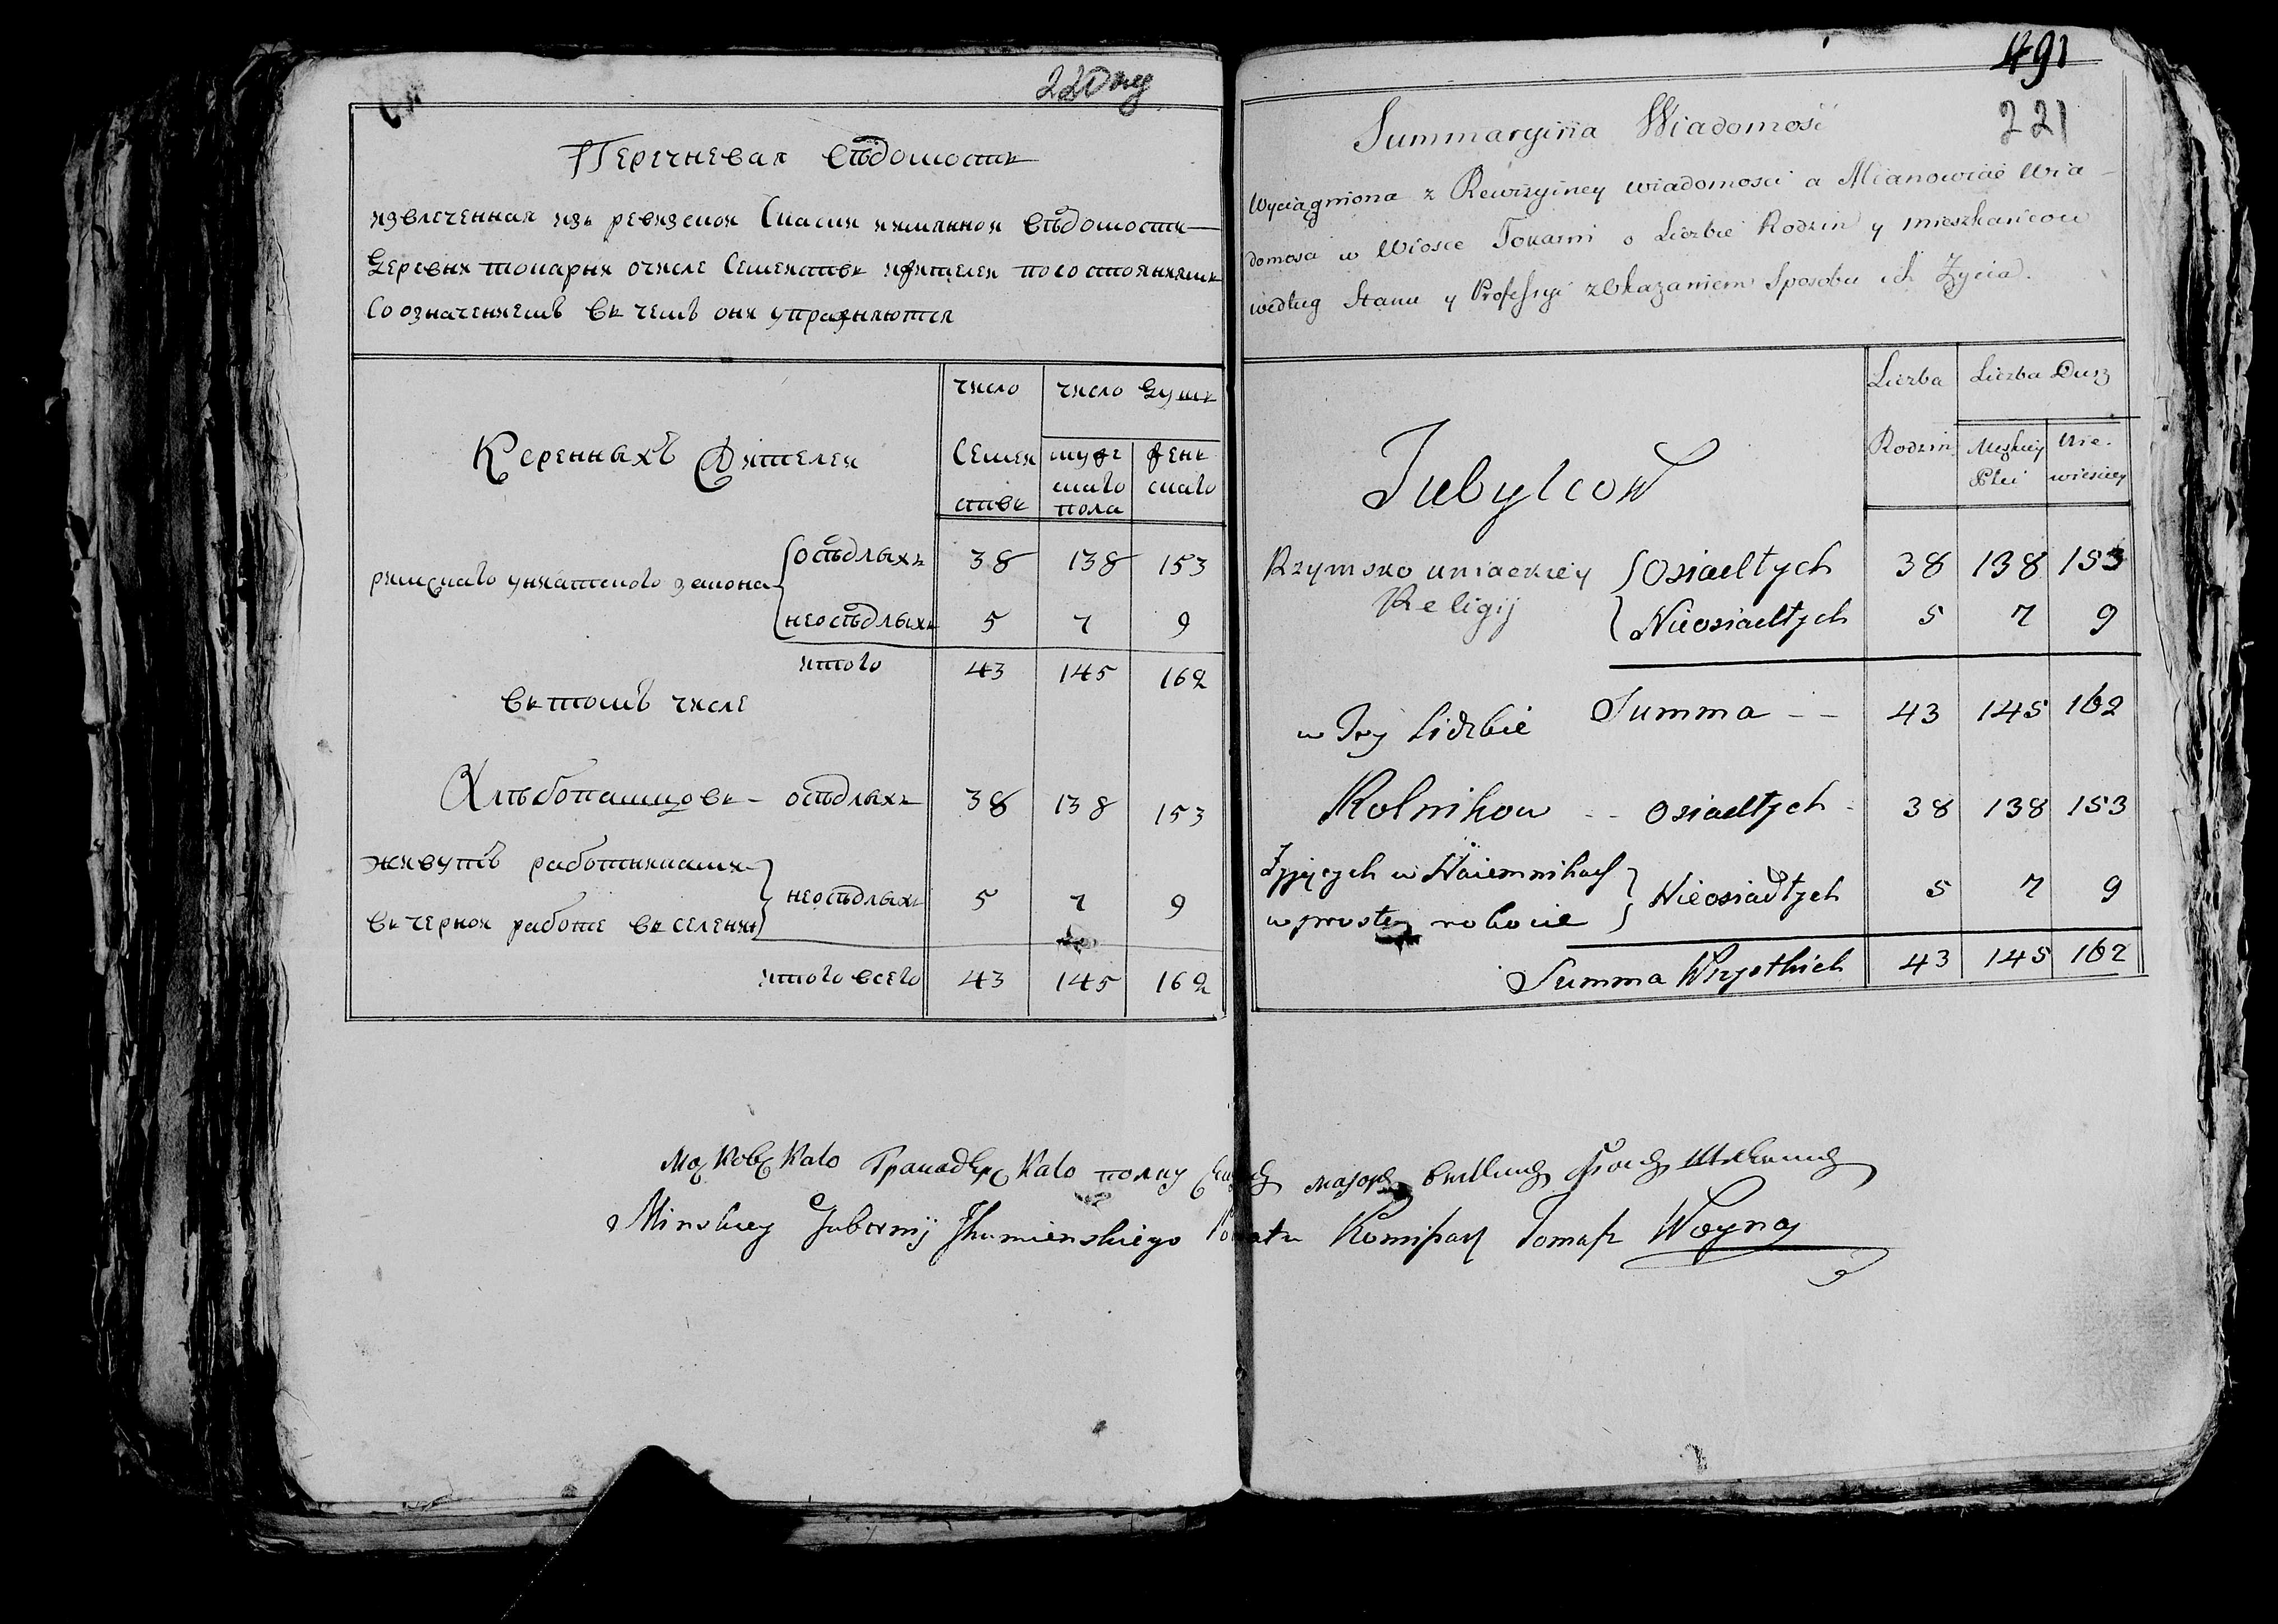 Перечневая вѣдомость
извлеченная изъ ревизской Сказки имянной вѣдомости
Деревни токарни очисле Семействъ ижителей посостояниямъ
Созначениемъ въ чемъ они упражняются
Коренныхъ Жителей
число
Семей
ствъ
число Душъ
мужe
скаго
пола
жен
скаго
римскаго униатского закона
осѣдлыхъ 38 138 153
неосѣдлыхъ 5 7 9
итого 43 145 162
въ томъ числе
Хлѣбопашцовъ - осѣдлыхъ 38 138 153
живутъ работниками
въ черной работе въ селении
неосѣдлыхъ 5 7 9
итого всего 43 145 162
491
221
Summaryina Wiadomość
Wyciągniona z Rewizyiney wiadomosci a Mianowicie Wia-
domosci w Wiosce Tokarni o Liczbie Rodzin y mieszkańcow
według Stanu y Professyi zWkazaniem Sposobu ich Życia.
Liczba
Rodzin
Liczba Dusz
Męzkiey
Płci
Nie-
wieściey
Tubylcow
Rzymsko uniackiey
Religij
Osiadłych 38 138 153
Nieosiadłych 5 7 9
Summa - - 43 145 162
w Tey Liczbie
Rolnikow - - osiadłych - 38 138 153
Żyjących w Naiemnikach
w prostey robocie
Nieosiadłych 5 7 9
Summa Wszystkich 43 145 162
Московскаго Гранадерскаго полку маJоръ
Minskiey Gubernij Ihumenskiego Powiatu Komissarz Tomasz Woyna